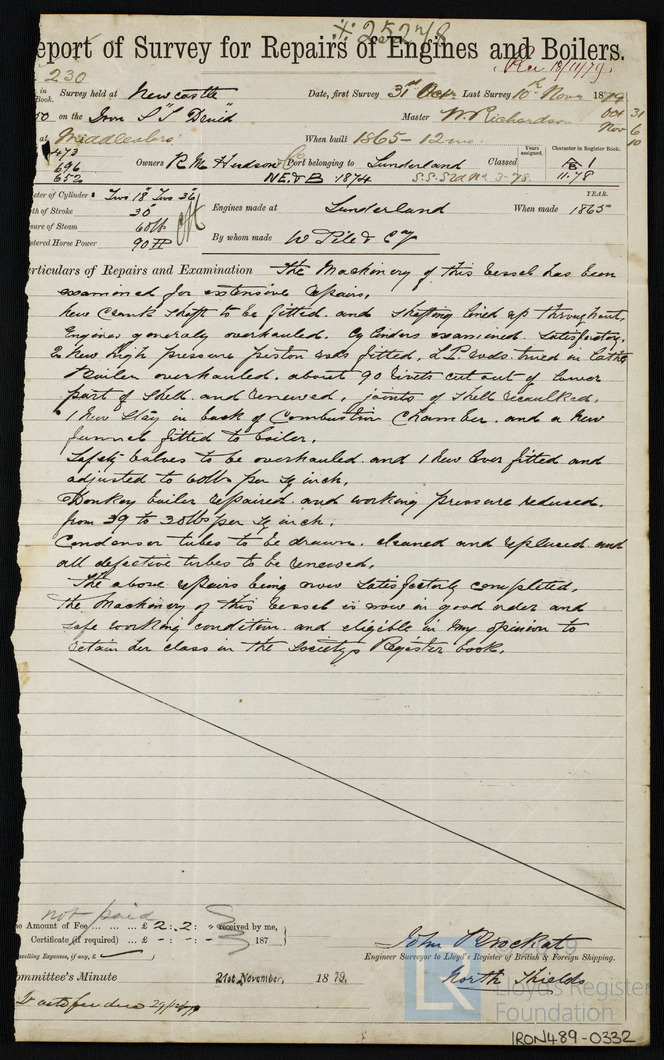 ※ 25278
eport of Survey for Repairs of Engines and Boilers.
Rec 18/11/79.
230
in Book. Survey held at Newcastle Date, first Survey 31st Octr Last Survey 10th Novr 1879
50 on the Iron S"S "Druid" Master W Richardson Oct 31
Nov 6
10
at Middlesbro' When built 1865-12mo.
473
696
652
Owners R. M. Hudson & Co Port belonging to Sunderland Classed Years assigned. Character in Register Book.
1
11.78
NE&B 1874 S.S. Srd No. 3-78
eter of Cylinder Two 18" Two 36
th of Stroke 30
sure of Steam 60lb
stered Horse Power 90 HP
Engines made at Sunderland When made YEAR. 1865
By whom made W Pile & Coy
rticulars of Repairs and Examination The Machinery of this vessel has been
examined for extensive repairs.
New Crank Shaft to be fitted and Shafting lined up throughout,
Engines generaly overhauled. Cylinders examined Satisfactory.
2 New high pressure piston rods fitted, L.P. rods turned in Lathe
Boiler overhauled. about 90 rivets cut out of lower
part of Shell and renewed, joints of Shell recaulked.
1 New Stay in back of Combustion Chamber. and a New
funnel fitted to boiler.
Safety Valves to be overhauled and 1 New lever fitted and
adjusted to 60lbs per sq inch.
Donkey boiler repaired and working pressure reduced.
from 39 to 30lbs per sq inch.
Condenser tubes to be drawn. cleaned and replaced and
all defective tubes to be renewed.
The above repairs being now Satisfactorly completed,
the Machinery of this vessel is now in good order and
safe working condition. and eligible in my opinion to
retain her class in the Society's Register book.
not paid
e Amount of Fee ... ... ... £ 2 : 2 : " received by me,
Certificate (if required) ... £ - : - : - 187
velling Expenses, if any, £
John Brockat
Engineer Surveyor to Lloyd's Register of British & Foreign Shipping.
North Shields
ommittee's Minute 21st November, 1879.
Lloyd's Register
Foundation
IRON489-0332